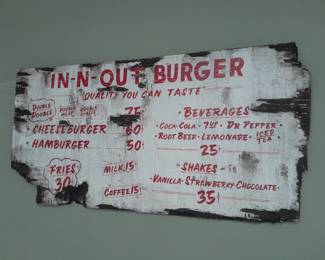 IN-N-OUT BURGER
"QUALITY YOU CAN TASTE"
DOUBLE DOUBLE DOUBLE MEAT DOUBLE CHEESE 75
CHEESEBURGER 60
HAMBURGER 50¢
FRIES
30
MILK 15
COFFEE 15
• BEVERAGES •
COCA-COLA • 7UP • DR PEPPER •
ROOT BEER • LEMONADE • ICED TEA
25
"SHAKES"
• VANILLA • STRAWBERRY • CHOCOLATE •
35¢